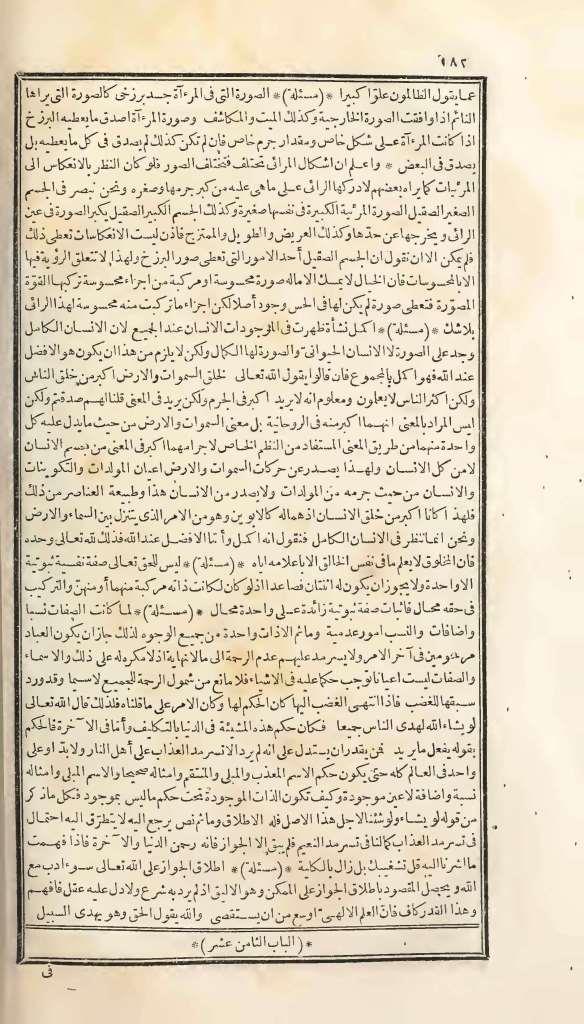 ١٨٢
عما يقول الظالمون علوّا كبيرا *(مسئلة)* الصورة التى فى المرءآة جسد برزخى كالصورة التى يراها
النائم اذا وافقت الصورة الخارجية وكذلك الميت والمكاشف وصورة المرءآة اصدق ما يعطيه البرزخ
اذا كانت المرءآة على شكل خاص ومقدار جرم خاص فان لم تكن كذلك لم يصدق فى كل ما يعطيه بل
يصدق فى البعض * واعلم ان اشكال المرائى تختلف فتختلف الصور فلو كان النظر بالانعكاس الى
المرئيات كما يراه بعضهم لادركها الرائى على ما هى عليه من كبر جرمها وصغره ونحن نبصر فى الجسم
الصغير الصقيل الصورة المرئية الكبيرة فى نفسها صغيرة وكذلك الجسم الكبير الصقيل يكبر الصورة فى عين
الرائى ويخرجها عن حدّها وكذلك العريض والطويل والمتموّج فاذن ليست الانعكاسات تعطى ذلك
فلم يمكن الا ان نقول ان الجسم الصقيل أحد الامور التى تعطى صور البرزخ ولهذا لا تتعلق الرؤية فيها
الا بالمحسوسات فان الخيال لا يمسك الا ما له صورة محسوسة او مركبة من اجزاء محسوسة تركبها القوّة
المصوّرة فتعطى صورة لم يكن لها فى الحس وجود أصلا لكن اجزاء ما تركبت منه محسوسة لهذا الرائى
بلا شك *(مسئلة)* اكمل نشأة ظهرت فى الموجودات الانسان عند الجميع لان الانسان الكامل
وجد على الصورة لا الانسان الحيوانىّ والصورة لها الكمال ولكن لا يلزم من هذا ان يكون هو الافضل
عند الله فهو اكمل بالمجموع فان قالوا يقول الله تعالى لخلق السموات والارض اكبر من خلق الناس
ولكن اكثر الناس لا يعلمون ومعلوم انه لا يريد اكبر فى الجرم ولكن يريد فى المعنى قلنا لهم صدقتم ولكن
ليس المراد بالمعنى انهما اكبر منه فى الروحانية بل معنى السموات والارض من حيث ما يدل عليه كل
واحدة منهما من طريق المعنى المستفاد من النظم الخاص لاجرامهما اكبر فى المعنى من جسم الانسان
لا من كل الانسان ولهذا يصدر عن حركات السموات والارض اعيان المولدات والتكوينات
والانسان من حيث جرمه من المولدات ولا يصدر من الانسان هذا وطبيعة العناصر من ذلك
فلهذا كانا اكبر من خلق الانسان اذ هما له كالابوين وهو من الامر الذى يتنزل بين السماء والارض
ونحن انما ننظر فى الانسان الكامل فنقول انه اكمل وأما الافضل عند الله فذلك لله تعالى وحده
فان المخلوق لا يعلم ما فى نفس الخالق الا باعلامه اياه *(مسئلة)* ليس للحق تعالى صفة نفسية ثبوتية
الا واحدة ولا يجوز ان يكون له اثنتان فصاعدا اذ لو كان لكانت ذاته مركبة منهما أو منهنّ والتركيب
فى حقه محال فاثبات صفة ثبوتية زائدة على واحدة محال *(مسئلة)* لما كانت الصفات نسبا
واضافات والنسب امور عدمية وما ثم الا ذات واحدة من جميع الوجوه لذلك جاز ان يكون العباد
مرحومين فى آخر الامر ولا يسرمد عليهم عدم الرحمة الى ما لا نهاية اذ لا مكره له على ذلك والاسماء
والصفات ليست اعيانا توجب حكما عليه فى الاشياء فلا مانع من شمول الرحمة للجميع لا سيما وقد ورد
سبقها للغضب فاذا انتهى الغضب اليها كان الحكم لها وكان الامر على ما قلناه فلذلك قال الله تعالى
لو يشاء الله لهدى الناس جميعا فكان حكم هذه المشيئة فى الدنيا بالتكليف وأما فى الآخرة فالحكم
بقوله يفعل ما يريد فمن يقدر ان يستدل على انه لم يرد الا تسرمد العذاب على أهل النار ولا بدّ او على
واحد فى العالم كله حتى يكون حكم الاسم المعذب والمبلى والمنتقم وامثاله صحيحا والاسم المبلى وامثاله
نسبة واضافة لا عين موجودة وكيف تكون الذات الموجودة تحت حكم ما ليس بموجود فكل ما ذكر
من قوله لو يشاء ولو شئنا لاجل هذا الاصل فله الاطلاق وما ثم نص يرجع اليه لا يتطرّق اليه احتمال
فى تسرمد العذاب كما لنا فى تسرمد النعيم فلم يبق الا الجواز فانه رحمن الدنيا والآخرة فاذا فهمت
ما اشرنا اليه قل تشغيبك بل زال بالكلية *(مسئلة)* اطلاق الجواز على الله تعالى سوء ادب مع
الله ويحصل المقصود باطلاق الجواز على الممكن وهو الاليق اذ لم يرد به شرع ولا دل عليه عقل فافهم
وهذا القدر كاف فانّ العلم الالهىّ اوسع من ان يستقصى والله يقول الحق وهو يهدى السبيل
*(الباب الثامن عشر)*
فى